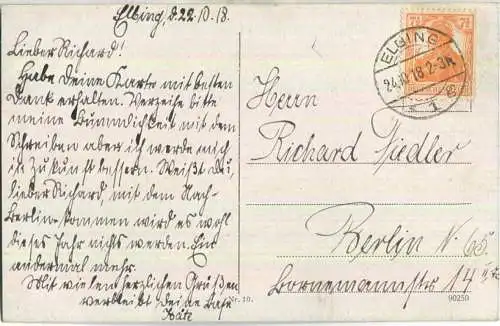 Elbing, d. 22.10.18.
Lieber Richard!
Habe Deine Karte mit besten
Dank erhalten. Verzeihe bitte
meine Bummligkeit mit dem
Schreiben aber ich werde mich
in Zukunft bessern. Weißt du,
lieber Richard, mit dem Nach-
Berlin-kommen wird es wohl
dieses Jahr nichts werden. Ein
andermal mehr.
Mit vielen herzlichen Grüßen
verbleibt Deine Base
Käte
7½ 7½
ELBING
24.10.18 2-3N
* 1
Herrn
Richard Fiedler
Berlin N. 65.
Bornemannstr 14
Nr. 10.
90250